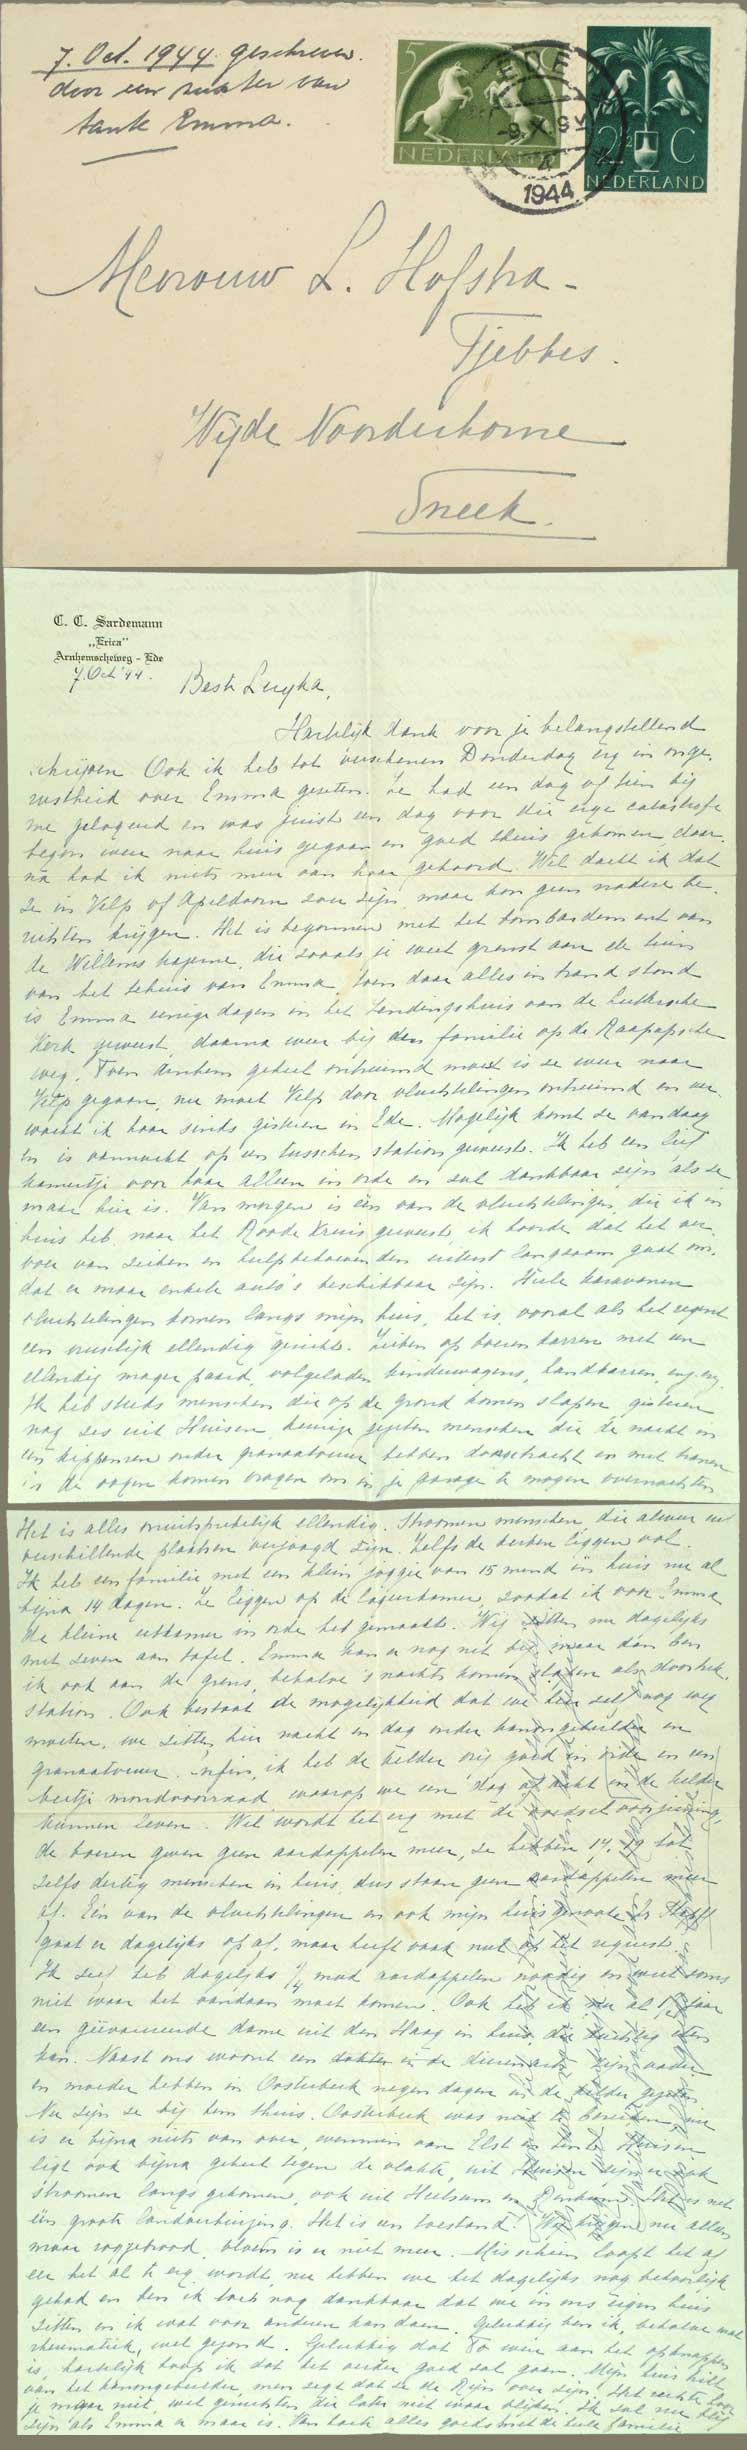 7. Oct. 1944. geschreven
door een zuster van
tante Emma.
5
NEDERLAND
EDE
-9.X.9 V
4
1944
2½ C
NEDERLAND
Mevrouw L. Hofstra-
Tjebbes.
Wijde Noorderhorne
Sneek.
C. C. Sardemann
„Erica”
Arnhemscheweg - Ede
7. Oct '44.
Beste Luyka,
Hartelijk dank voor je belangstellend
schrijven. Ook ik heb tot verschenen Donderdag erg in onge-
rustheid over Emma gezeten. Ze had een dag of tien bij
me gelogeerd en was juist een dag voor die erge catastrofe
begon weer naar huis gegaan en goed thuis gekomen, daar-
na had ik niets meer van haar gehoord. Wel dacht ik dat
ze in Velp of Apeldoorn zou zijn, maar kon geen nadere be-
richten krijgen. Het is begonnen met het bombardement van
de Willems kazerne, die zooals je weet grenst aan de tuin
van het tehuis van Emma, toen daar alles in brand stond
is Emma eenige dagen in het Zendingshuis van de Luthersche
Kerk geweest, daarna weer bij den familie op de Raapopsche
weg. Toen Arnhem geheel ontruimd moest is ze weer naar
Velp gegaan, nu moet Velp door vluchtelingen ontruimd en ver-
wacht ik haar sinds gisteren in Ede. Mogelijk komt ze vandaag
en is vannacht op een tusschen station geweest. Ik heb een lief
kamertje voor haar alleen in orde en zal dankbaar zijn als ze
maar hier is. Van morgen is één van de vluchtelingen, die ik in
huis heb, naar het Roode Kruis geweest, ik hoorde dat het ver-
voer van zieken en hulpbehoevenden uiterst langzaam gaat om-
dat er maar enkele auto's beschikbaar zijn. Heele karavanen
vluchtelingen komen langs mijn huis, het is vooral als het regent
een vreeselijk ellendig gezicht. Zieken op boeren karren met een
ellendig mager paard, volgeladen kinderwagens, handkarren, enz. enz.
Ik heb steeds menschen die op de grond komen slapen, gisteren
nog zes uit Huisen, keurige menschen die de nacht in
een kippenren onder granaatvuur hebben doorgebracht en met tranen
in de oogen komen vragen om in je garage te mogen overnachten
Het is alles onuitsprekelijk ellendig. Stroomen menschen die alweer uit
verschillende plaatsen verjaagd zijn. Zelfs de kerken liggen vol.
Ik heb een familie met een klein joggie van 15 maand in huis nu al
bijna 14 dagen. Ze liggen op de logeerkamer, zoodat ik voor Emma
de kleine eetkamer in orde heb gemaakt. Wij zitten nu dagelijks
met zeven aan tafel. Emma kan er nog net bij maar dan ben
ik ook aan de grens, behalve 's nachts komen slapen als doortrek-
station. Ook bestaat de mogelijkheid dat we hier zelf nog weg
moeten, we zitten hier nacht en dag onder kanongebulder en
granaatvuur. Enfin, ik heb de kelder erg goed in orde en een
beetje mondvoorraad waarop we een dag of acht in de kelder
kunnen leven. Wel wordt het erg met de voedselvoorziening,
de boeren geven geen aardappelen meer, ze hebben 14, 19 tot
zelfs dertig menschen in huis, dus staan geen aardappelen meer
af. Eén van de vluchtelingen en ook mijn huisgenoote
gaat er dagelijks op af, maar heeft vaak niet op het request.
Ik zelf heb dagelijks ¼ mud aardappelen noodig en weet soms
niet waar het vandaan moet komen. Ook heb ik nu al 1½ jaar
een geëvacueerde dame uit den Haag in huis, die
kan. Naast ons woont een dokter in de dierenarts zijn vader
en moeder hebben in Oosterbeek negen dagen in de kelder gezeten
Nu zijn ze bij hem thuis. Oosterbeek was niet te bereiken, nu
is er bijna niets van over, evenmin van Elst en Huisen
ligt ook bijna geheel tegen de vlakte, uit Huisen zijn er ook
stroomen langs gekomen, ook uit Heelsum en Renkum. Het is net
één groote landverhuizing. Het is een toestand! Wij krijgen nu alleen
maar roggebrood, bloem is er niet meer. Misschien loopt het af
eer het al te erg wordt, nu hebben we het dagelijks nog behoorlijk
gehad en ben ik toch nog dankbaar dat we in ons eigen huis
zitten en ik wat voor anderen kan doen. Gelukkig ben ik, behalve wat
rheumatiek, wel gezond. Gelukkig dat To weer aan het opknappen
is, hartelijk hoop ik dat het verder goed zal gaan. Mijn huis trilt
van het kanongebulder, men zegt dat ze de Rijn over zijn. Het rechte hoor
je maar niet, wel geruchten die later niet waar blijken. Ik zal nu blij
zijn als Emma er maar is. Van harte alles goeds met de heele familie